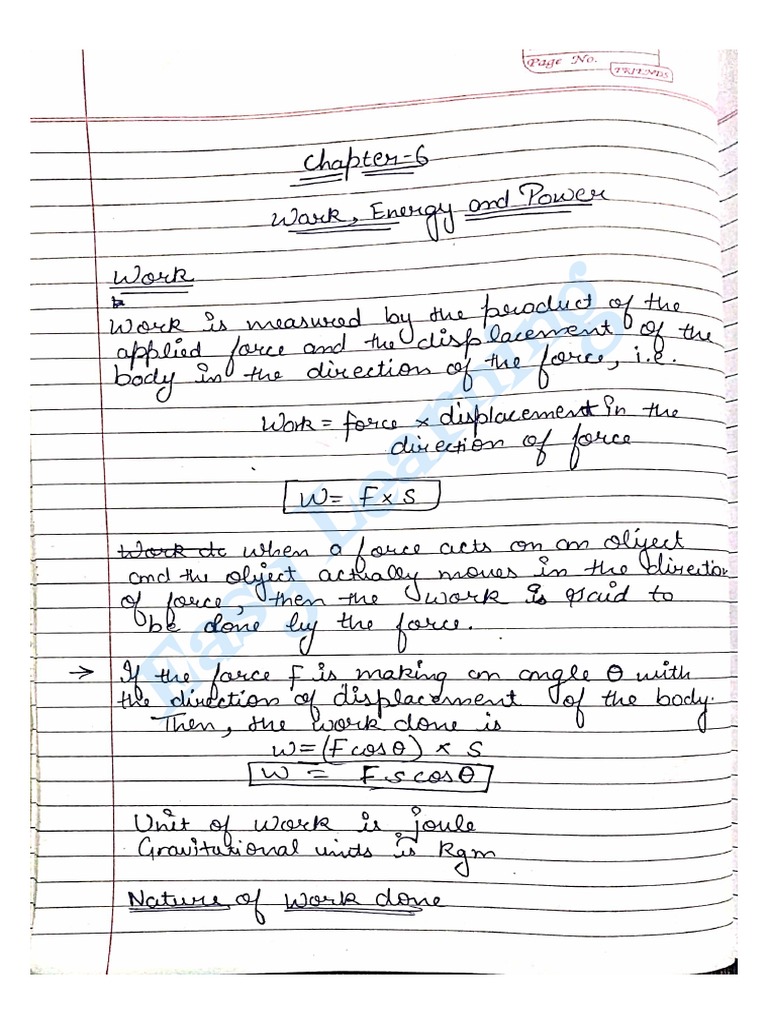 Page No.
FRIENDS
Chapter-6
Work, Energy and Power
Work
Work is measured by the product of the
applied force and the displacement of the
body in the direction of the force, i.e.
Work = force × displacement in the
direction of force
W = F × S
Work dc when a force acts on an object
and the object actually moves in the direction
of force, then the work is said to
be done by the force.
→ If the force F is making an angle θ with
the direction of displacement of the body.
Then, the work done is
W = (F cosθ) × S
W = F s cosθ
Unit of work is joule
Gravitational units is Kgm
Nature of work done
Easy Learning